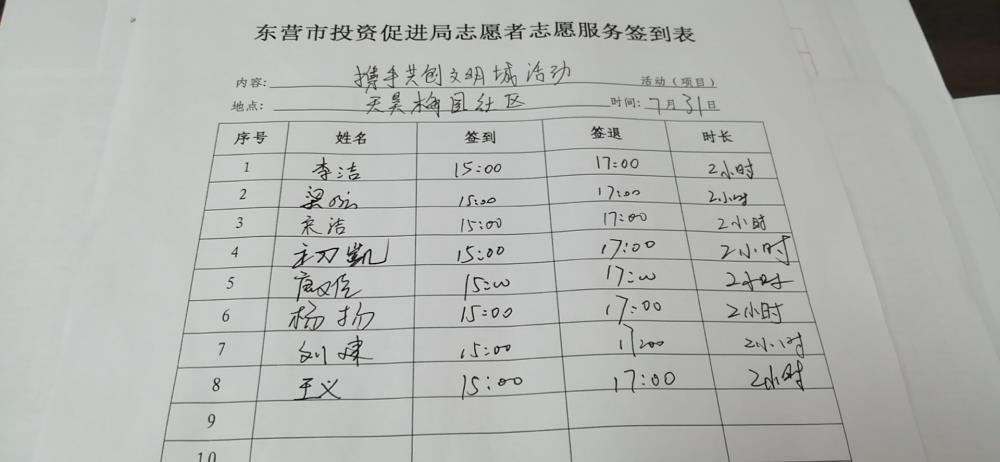 东营市投资促进局志愿者志愿服务签到表
内容: 携手共创文明城活动 活动（项目）
地点: 天昊梅园社区 时间: 7月31日
序号 姓名 签到 签退 时长
1 李洁 15:00 17:00 2小时
2 梁 15:00 17:00 2小时
3 宋洁 15:00 17:00 2小时
4 王 凯 15:00 17:00 2小时
5 15:00 17:00 2小时
6 杨扬 15:00 17:00 2小时
7 刘 15:00 17:00 2小时
8 王义 15:00 17:00 2小时
9
10